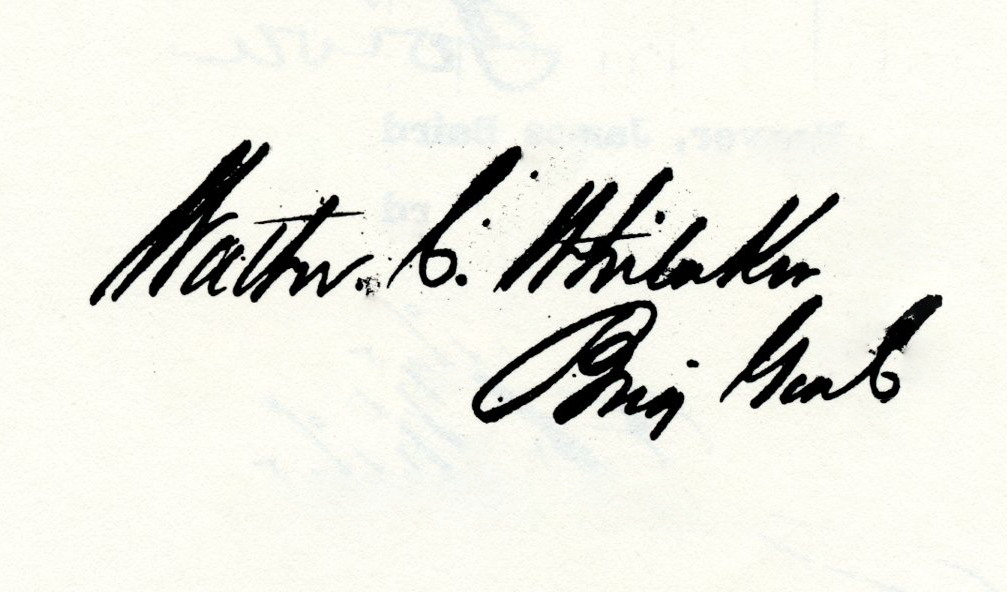 Walter. C. Whitaker
Brig Genl